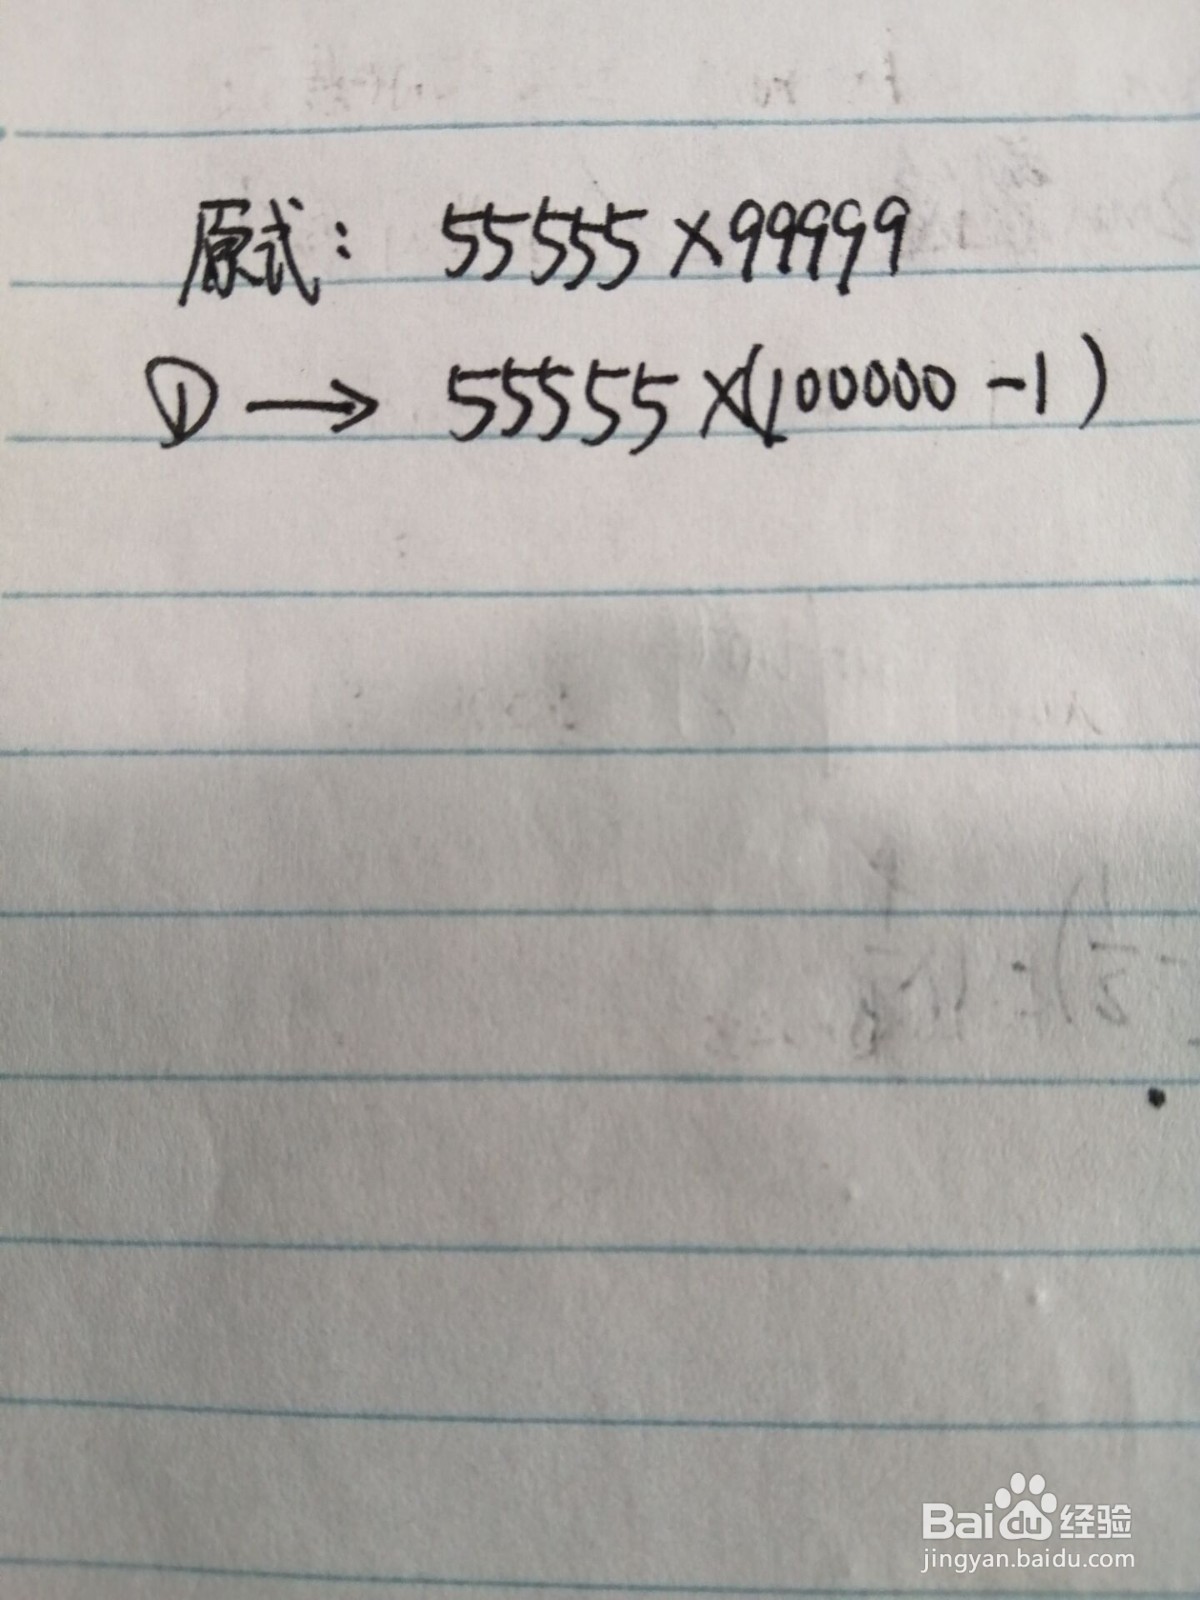 原式: 55555×99999
① → 55555×(100000-1)
Baidu经验
jingyan.baidu.com